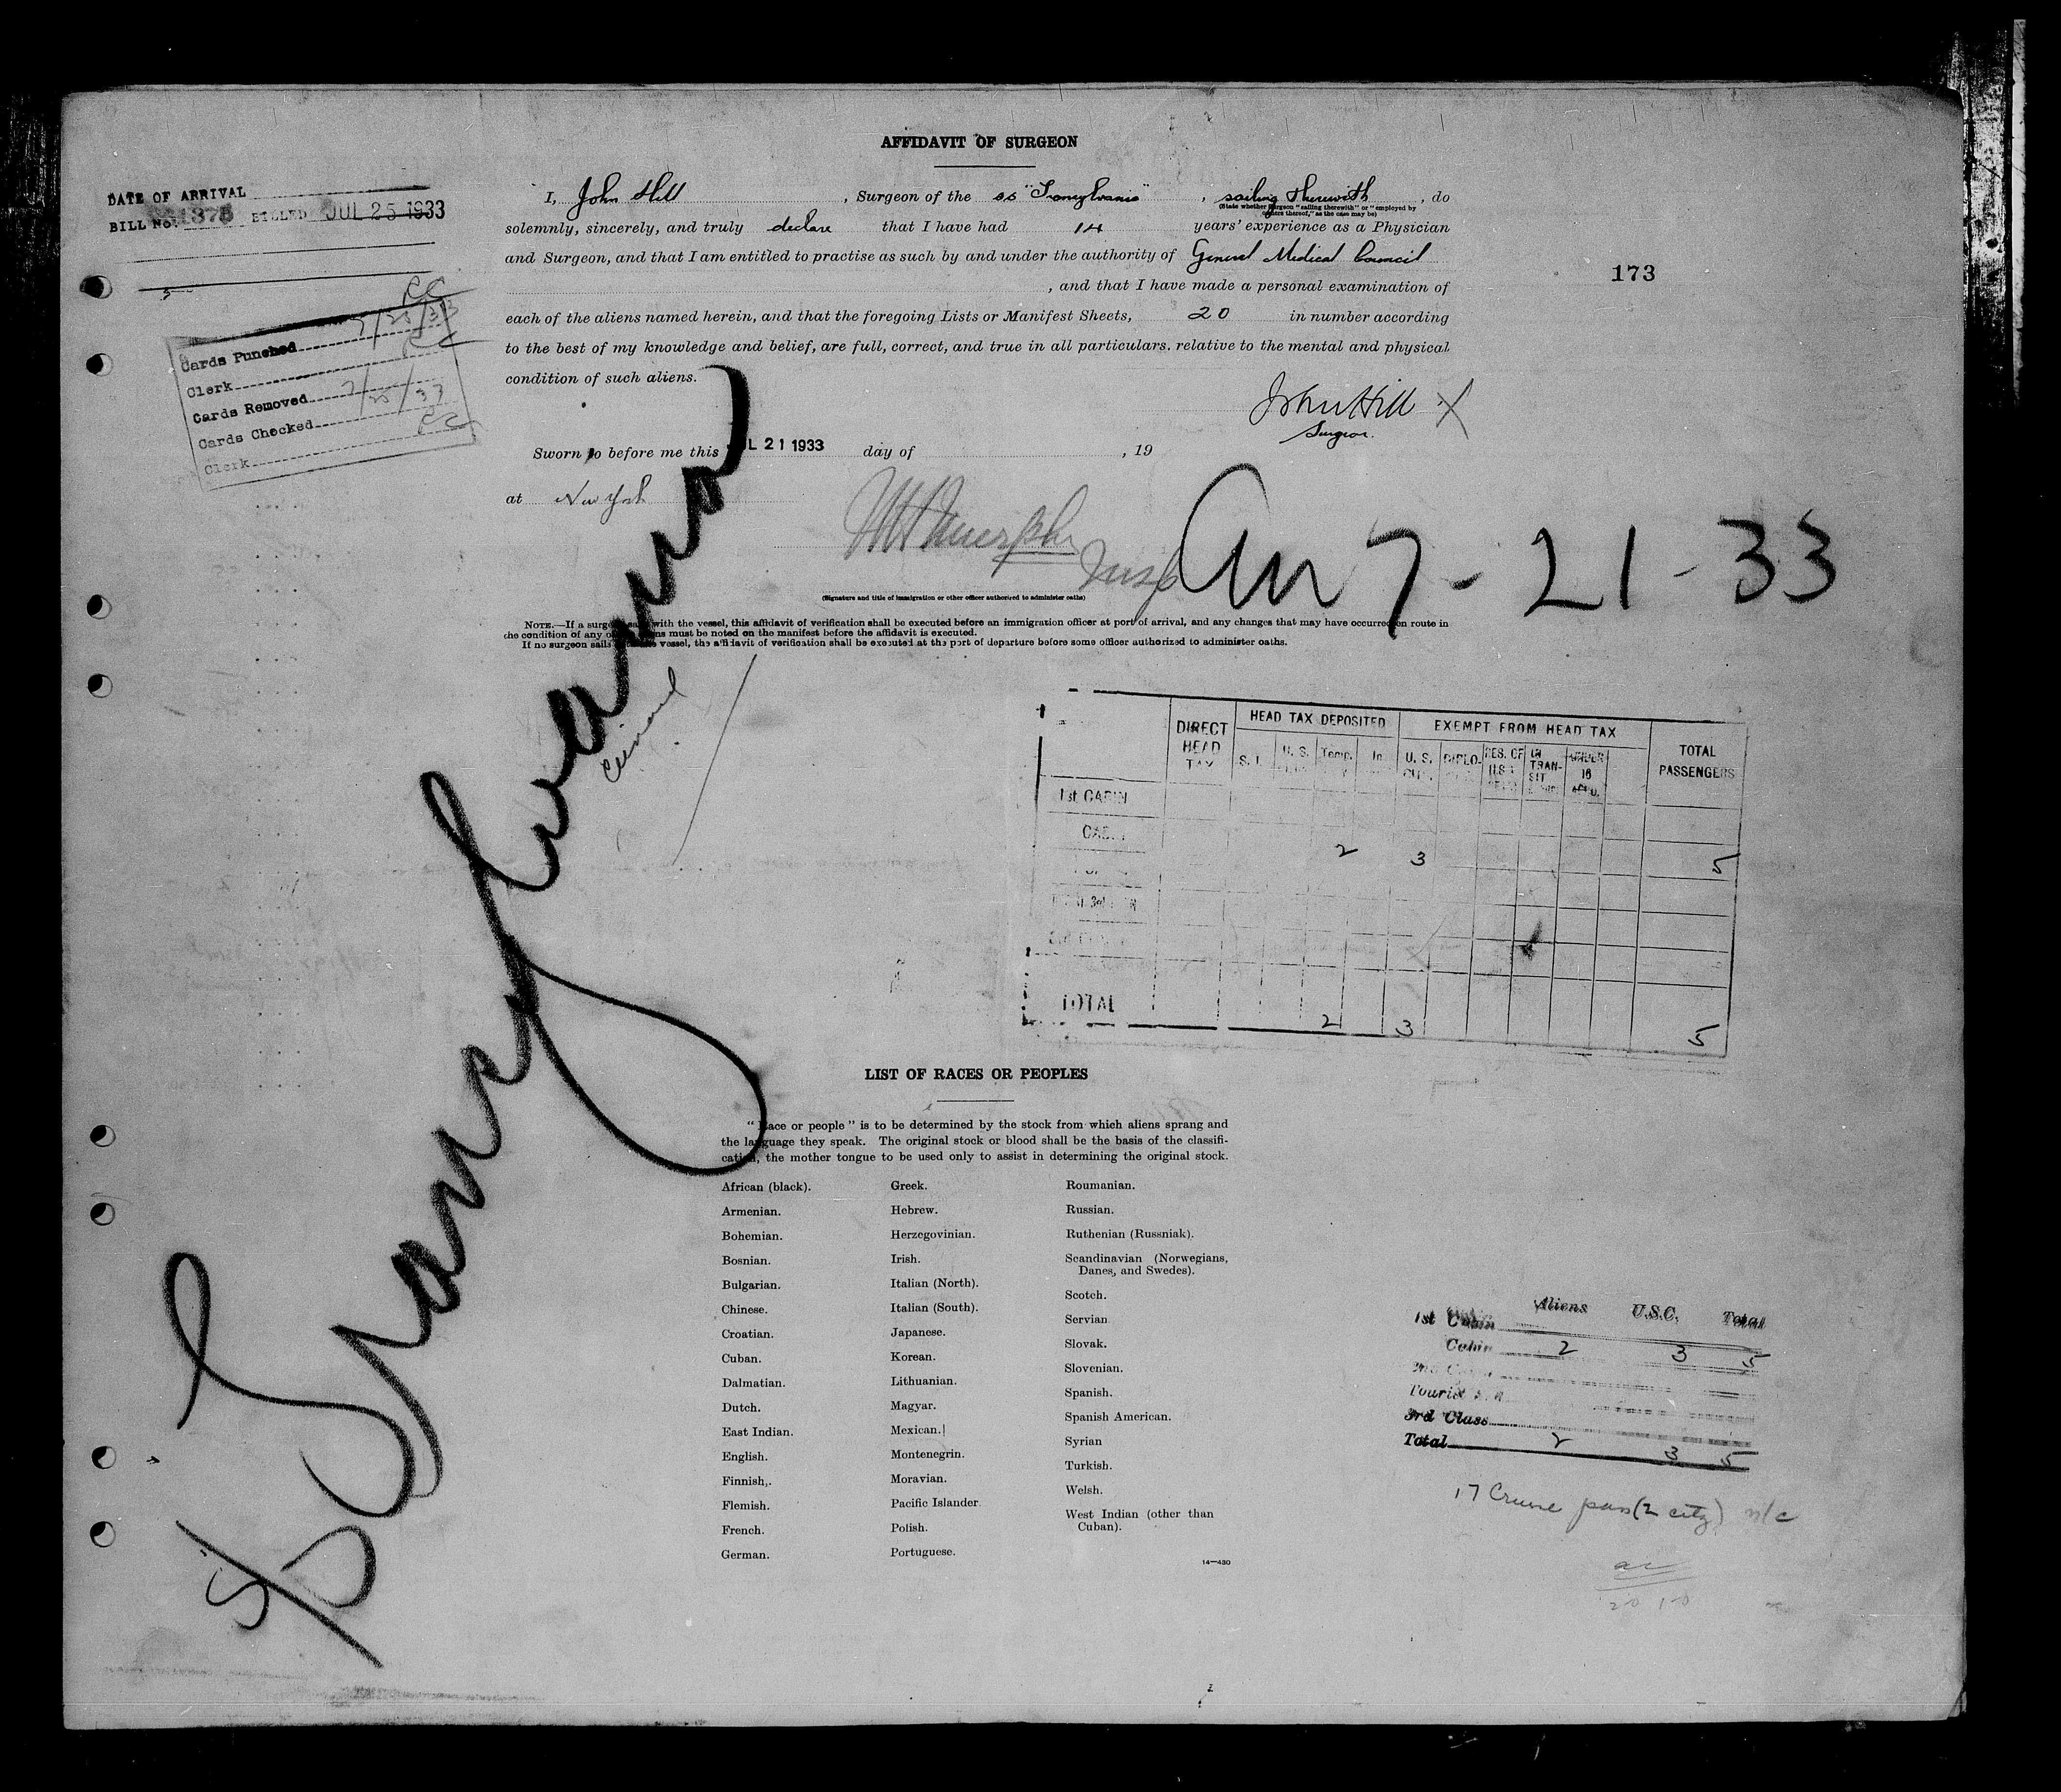 AFFIDAVIT OF SURGEON
DATE OF ARRIVAL
BILL No. BILLED JUL 25 1933
I, John Hill, Surgeon of the ss "Transylvania", sailing therewith, do
(State whether Surgeon "sailing therewith" or "employed by
owners thereof," as the case may be)
solemnly, sincerely, and truly declare that I have had 14 years' experience as a Physician
and Surgeon, and that I am entitled to practise as such by and under the authority of General Medical Council
173
, and that I have made a personal examination of
each of the aliens named herein, and that the foregoing Lists or Manifest Sheets, 20 in number according
to the best of my knowledge and belief, are full, correct, and true in all particulars. relative to the mental and physical
condition of such aliens.
Cards Punched 7/25/33
Clerk
Cards Removed 7/25/33
Cards Checked
Clerk
John Hill X
Surgeon.
Sworn to before me this JUL 21 1933 day of , 19
at New York
Murphy
Insp
Arr 7-21-33
(Signature and title of immigration or other officer authorized to administer oaths)
NOTE.—If a surgeon sails with the vessel, this affidavit of verification shall be executed before an immigration officer at port of arrival, and any changes that may have occurred on route in
the condition of any of the aliens must be noted on the manifest before the affidavit is executed.
If no surgeon sails with the vessel, the affidavit of verification shall be executed at the port of departure before some officer authorized to administer oaths.
SS Transylvania
Cunard
DIRECT HEAD TAX
HEAD TAX DEPOSITED
EXEMPT FROM HEAD TAX
TOTAL PASSENGERS
S. I. U. S. Temp. In U. S. DIPLO- RES. OF U.S. IN TRANSIT UNDER 16
1st CABIN
CABIN 2 3 5
TOTAL 2 3 5
LIST OF RACES OR PEOPLES
"Race or people" is to be determined by the stock from which aliens sprang and
the language they speak. The original stock or blood shall be the basis of the classifi-
cation, the mother tongue to be used only to assist in determining the original stock.
African (black).
Armenian.
Bohemian.
Bosnian.
Bulgarian.
Chinese.
Croatian.
Cuban.
Dalmatian.
Dutch.
East Indian.
English.
Finnish.
Flemish.
French.
German.
Greek.
Hebrew.
Herzegovinian.
Irish.
Italian (North).
Italian (South).
Japanese.
Korean.
Lithuanian.
Magyar.
Mexican.
Montenegrin.
Moravian.
Pacific Islander
Polish.
Portuguese.
Roumanian.
Russian.
Ruthenian (Russniak).
Scandinavian (Norwegians,
Danes, and Swedes).
Scotch.
Servian
Slovak.
Slovenian.
Spanish.
Spanish American.
Syrian
Turkish.
Welsh.
West Indian (other than
Cuban).
14—430
Aliens U.S.C. Total
1st Cabin
Cabin 2 3 5
Tourist
3rd Class
Total 2 3 5
17 Cruise pass (2 city) n/c